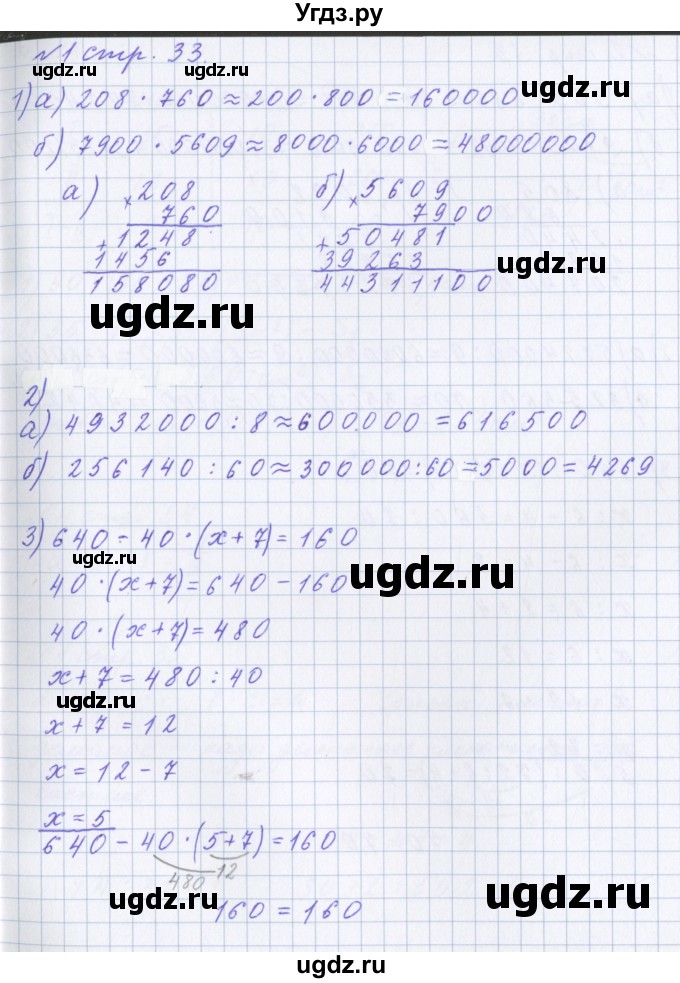 Угдз.ру
№1 стр. 33.
ugdz.ru
ugdz.ru
1) а) 208 · 760 ≈ 200 · 800 = 160000
б) 7900 · 5609 ≈ 8000 · 6000 = 48000000
а) × 208
760
+ 1248
1456
158080
б) × 5609
7900
+ 50481
39263
44311100
ugdz.ru
ugdz.ru
2)
а) 4932000 : 8 ≈ 600000 = 616500
б) 256140 : 60 ≈ 300000 : 60 = 5000 = 4269
3) 640 - 40 · (x + 7) = 160
ugdz.ru
40 · (x + 7) = 640 - 160
ugdz.ru
40 · (x + 7) = 480
x + 7 = 480 : 40
ugdz.ru
x + 7 = 12
x = 12 - 7
x = 5
640 - 40 · (5 + 7) = 160
12
480
ugdz.ru
ugdz.ru
160 = 160
ugdz.ru